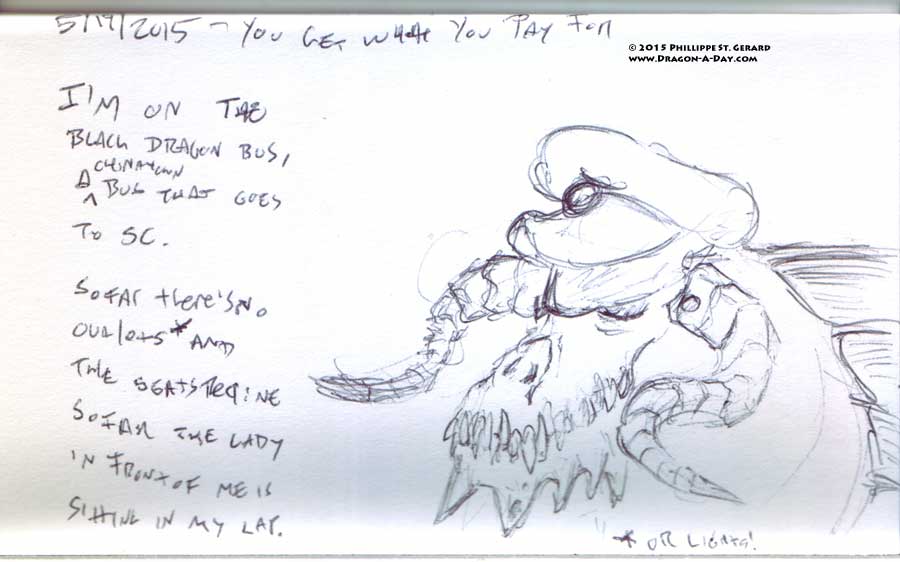 5/14/2015 - YOU GET WHAT YOU PAY FOR
© 2015 PHILLIPPE ST. GERARD
WWW.DRAGON-A-DAY.COM
I'M ON THE
BLACK DRAGON BUS,
A CHINATOWN
BUS THAT GOES
TO SC.
SOFAR there's NO
OUtlets* AND
THE SEATS RECLINE
SO FAR THE LADY
IN FRONT OF ME IS
SITTING IN MY LAP.
* OR LIGHTS!